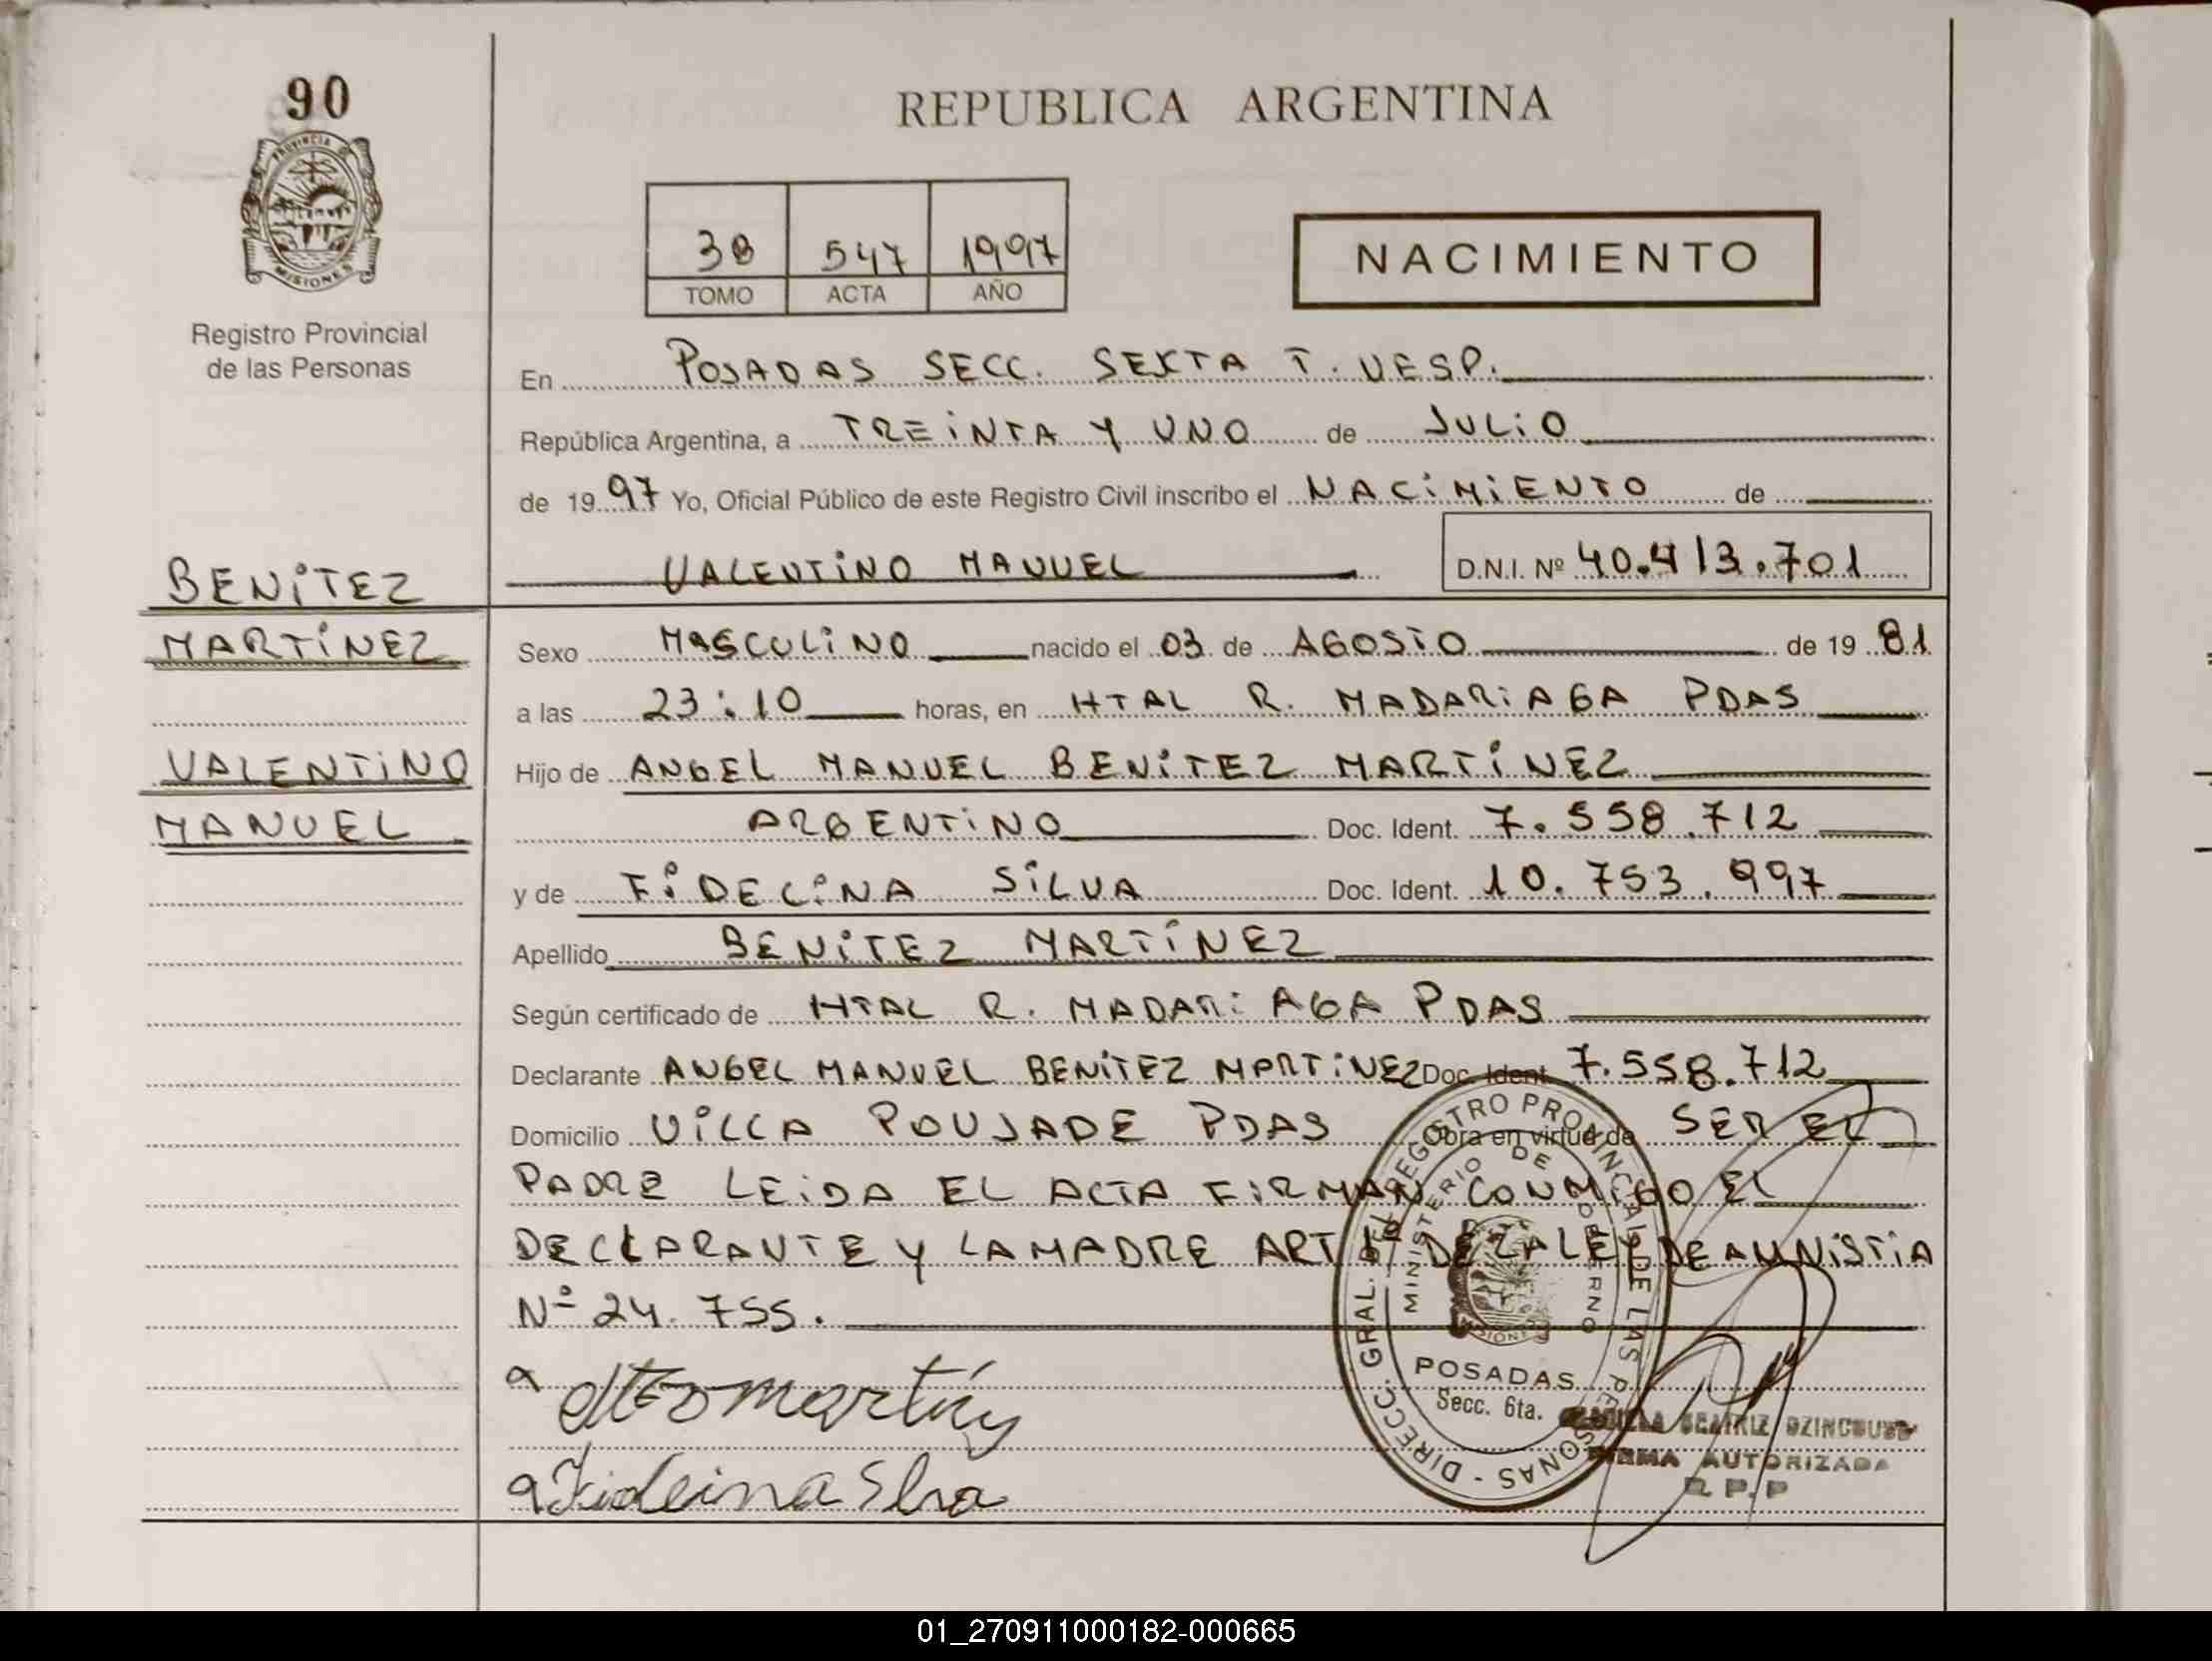 90
REPUBLICA ARGENTINA
PROVINCIA D
MISIONES
38 547 1997
TOMO ACTA AÑO
NACIMIENTO
Registro Provincial
de las Personas
En POSADAS SECC. SEXTA T. VESP.
República Argentina, a TREINTA Y UNO de JULIO
de 1997 Yo, Oficial Público de este Registro Civil inscribo el NACIMIENTO de
VALENTINO MANUEL D.N.I. Nº 40.413.701
BENITEZ
MARTÍNEZ
VALENTINO
MANUEL
Sexo MASCULINO nacido el 03 de AGOSTO de 19 81
a las 23:10 horas, en HTAL R. MADARIAGA PDAS
Hijo de ANGEL MANUEL BENITEZ MARTÍNEZ
ARGENTINO Doc. Ident. 7.558.712
y de FIDELINA SILVA Doc. Ident. 10.753.997
Apellido BENITEZ MARTÍNEZ
Según certificado de HTAL R. MADARIAGA PDAS
Declarante ANGEL MANUEL BENITEZ MARTINEZ Doc. Ident. 7.558.712
Domicilio VILLA POUJADE PDAS Obra en virtud de SER EL
PADRE LEIDA EL ACTA FIRMAN CONMIGO EL
DECLARANTE Y LA MADRE ART DE LA LEY DE AMNISTIA
Nº 24.755.
DIRECC. GRAL. DEL REGISTRO PROVINCIAL DE LAS PERSONAS
MINISTERIO DE GOBIERNO
MISIONES
POSADAS
Secc. 6ta.
BEATRIZ
FIRMA AUTORIZADA
R.P.P
01_270911000182-000665